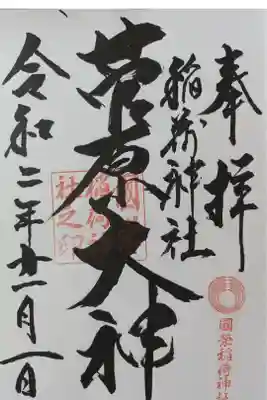 奉拝
稲荷神社
菅原大神
令和二年十一月一日
稲荷神社之印
國榮稲荷神社